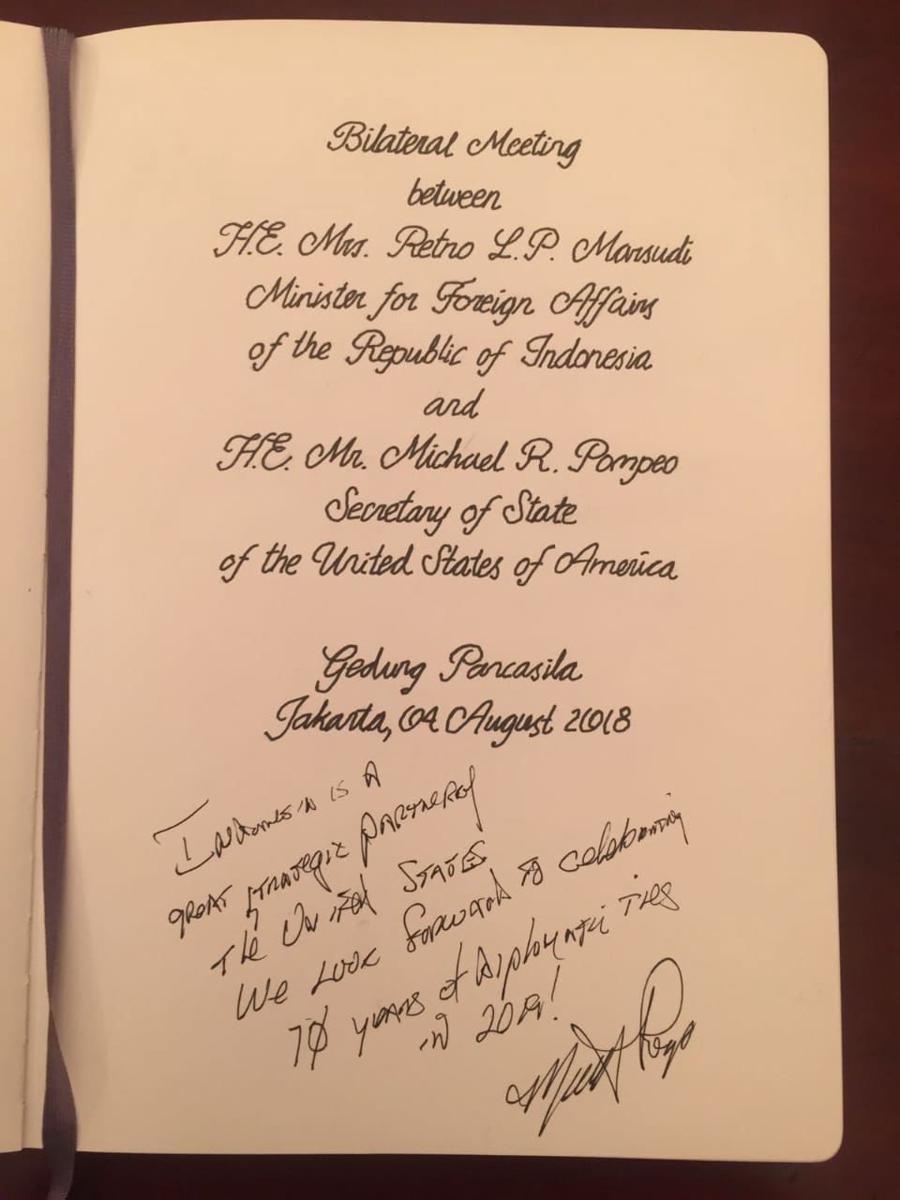 Bilateral Meeting
between
H.E. Mrs. Retno L.P. Marsudi
Minister for Foreign Affairs
of the Republic of Indonesia
and
H.E. Mr. Michael R. Pompeo
Secretary of State
of the United States of America
Gedung Pancasila
Jakarta, 04 August 2018
Indonesia is A
great strategic partner of
the United States
We look forward to celebrating
70 years of diplomatic ties
in 2019!